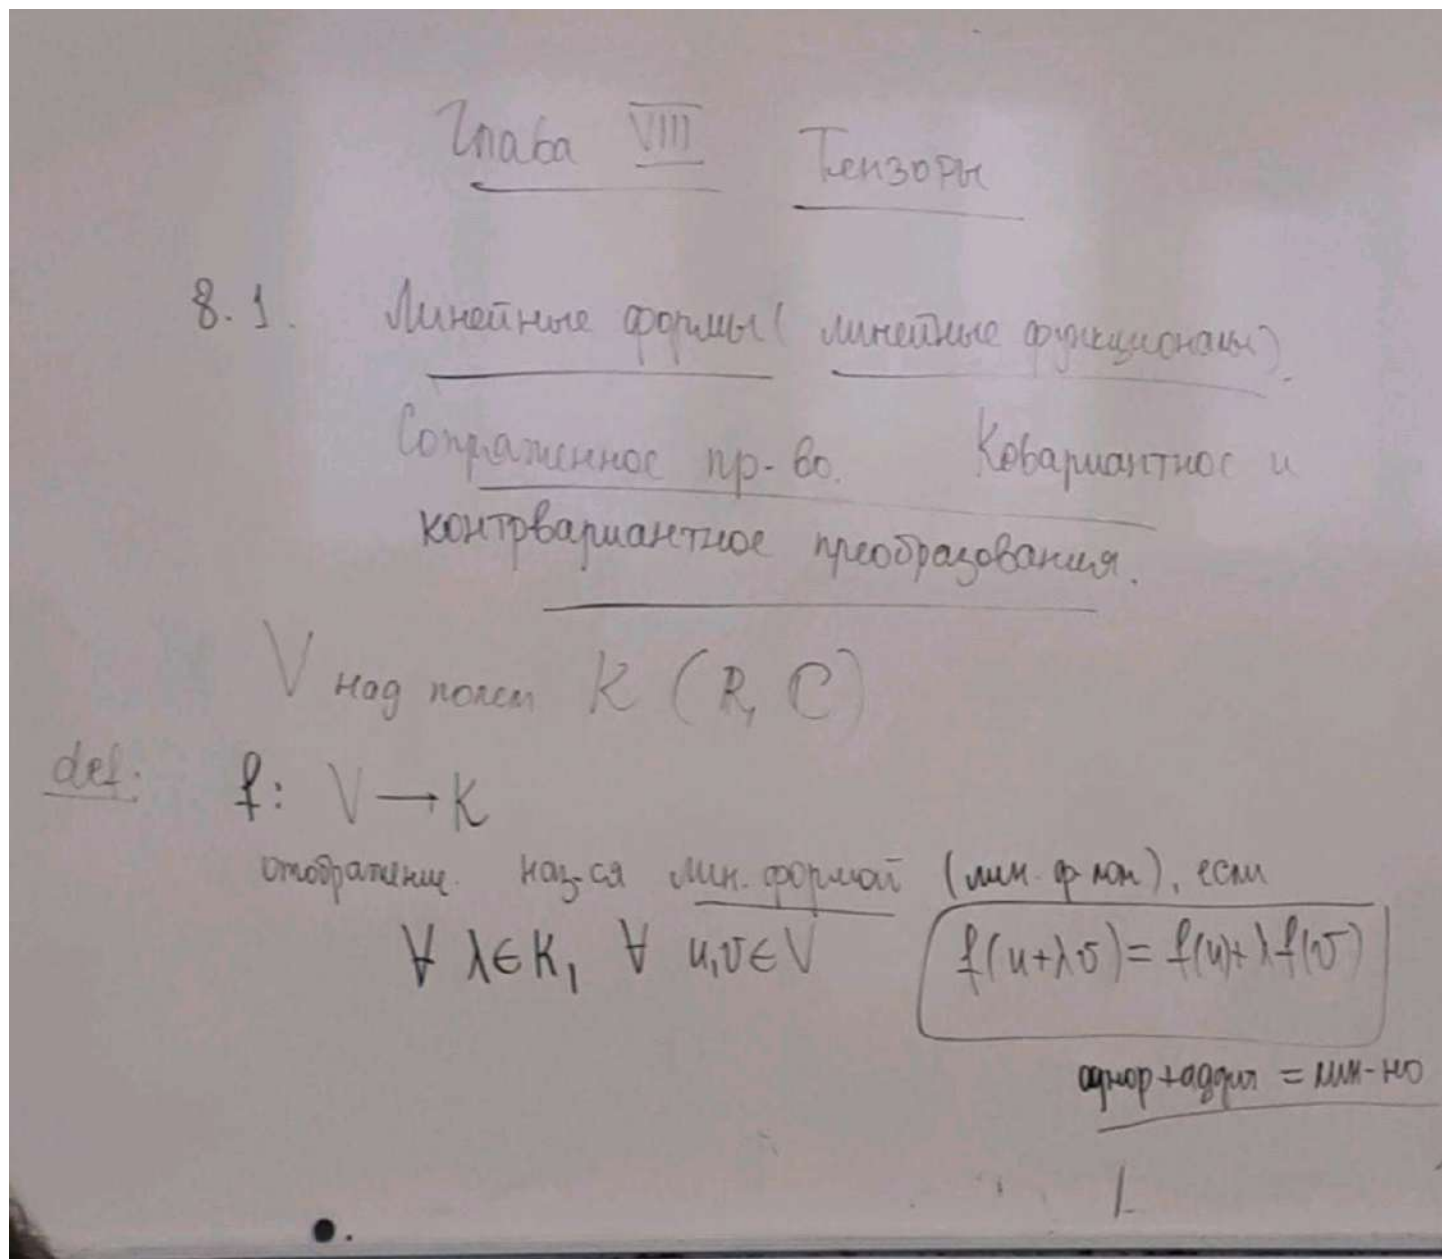 Глава VIII Тензоры
8.1. Линейные формы (линейные функционалы).
Сопряженное пр-во. Ковариантное и
контрвариантное преобразования.
V над полем K (R, C)
def. f: V → K
отображение наз-ся лин. формой (лин. ф-лом), если
∀ λ∈K, ∀ u,v∈V f(u+λv)=f(u)+λf(v)
однор+аддит = лин-но